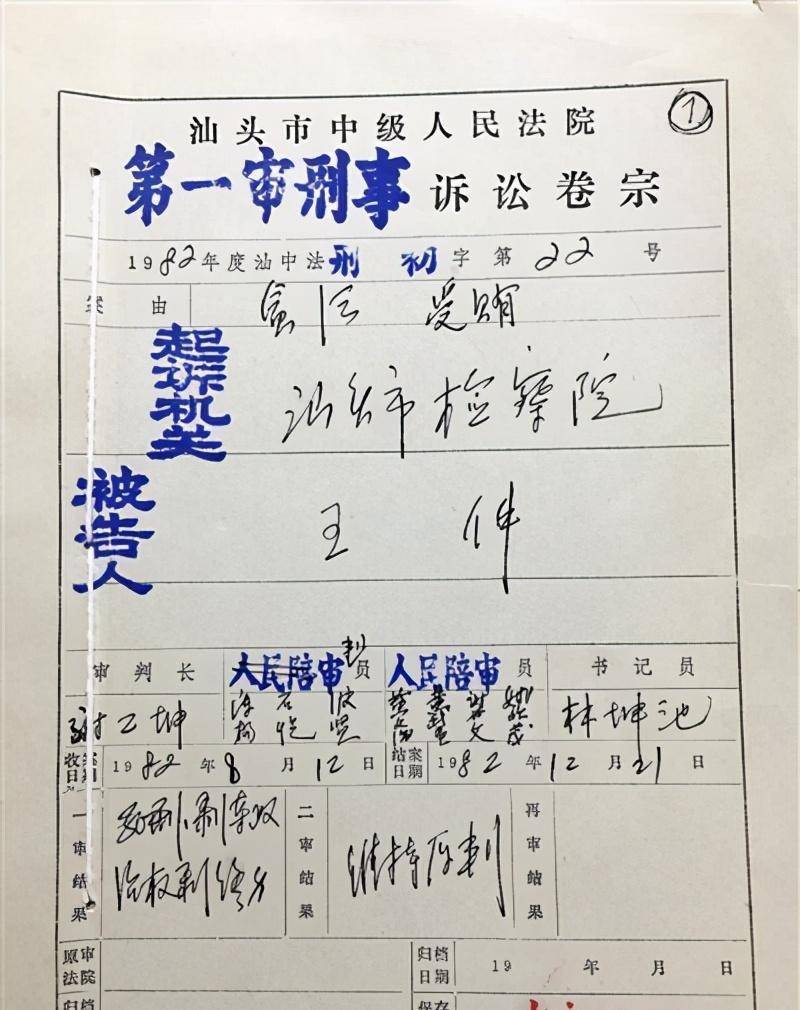 ①
汕头市中级人民法院
第一审刑事诉讼卷宗
1982年度汕中法刑初字第22号
案由 贪污 受贿
起诉机关 汕头市检察院
被告人 王仲
审判长 人民陪审判员 人民陪审员 书记员
林坤池
收案日期 1982年8月12日 结案日期 1982年12月21日
一审结果 死刑剥夺政治权利终身 二审结果 维持原判 再审结果
原审法院 归档日期 19 年 月 日
归档 保存